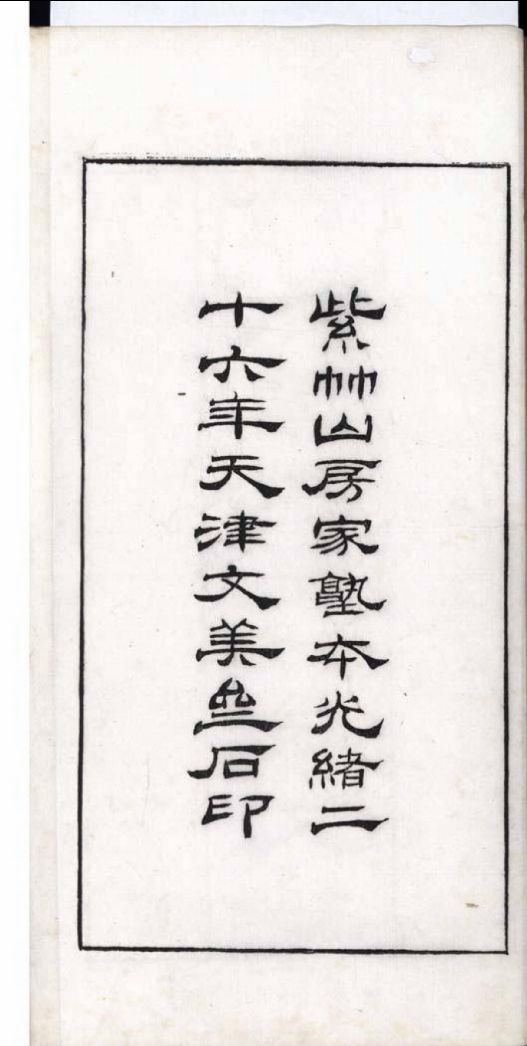 紫竹山房家塾本光緒二
十六年天津文美齋石印